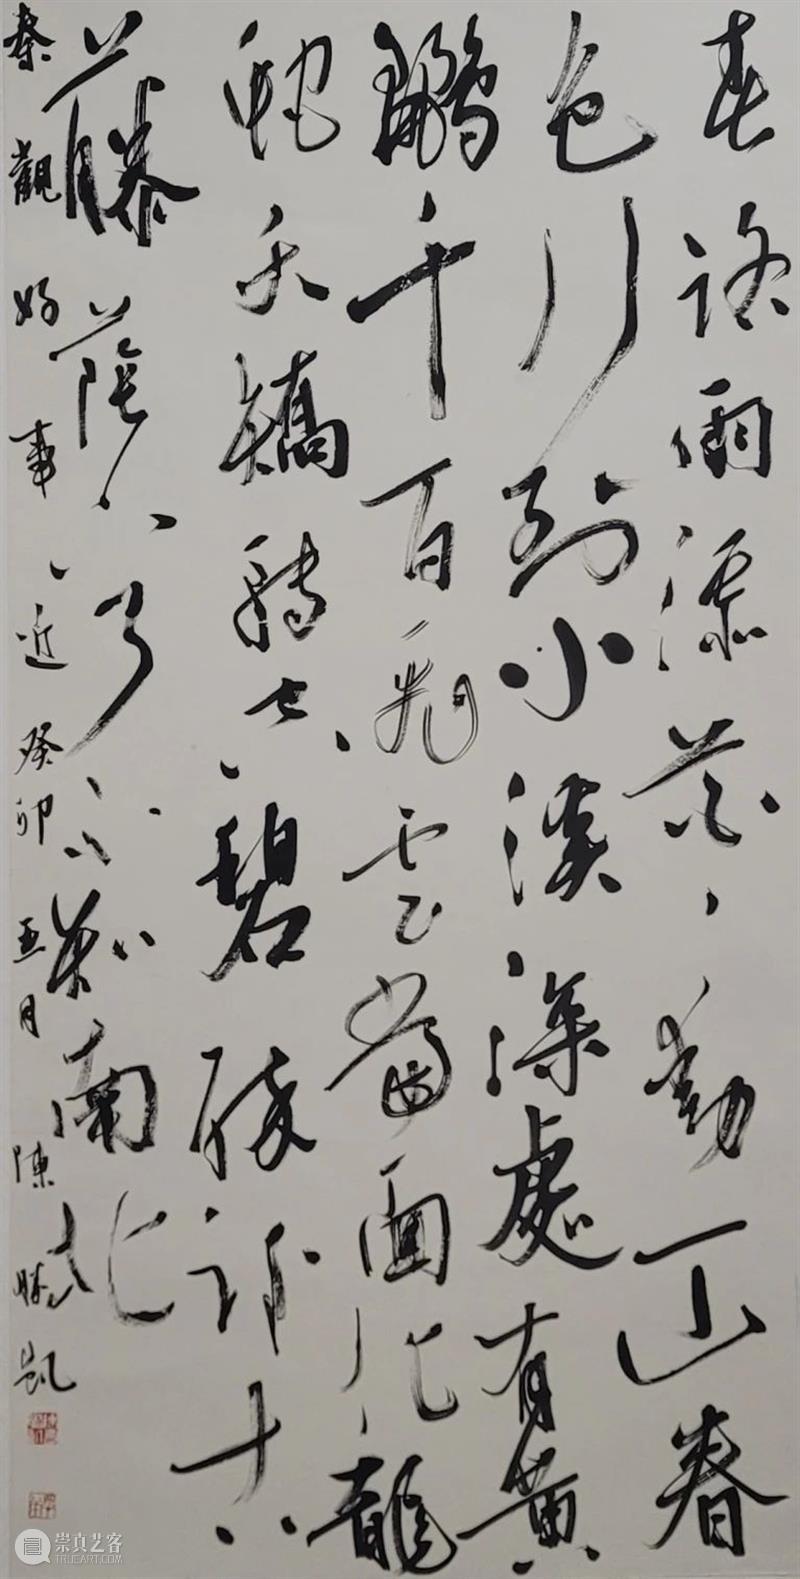 春路雨添花〻動一山春
色行到小溪深處有黃
鸝千百飛雲當面化龍
蛇夭矯轉空碧醉臥古
藤蔭下了不知南北
秦觀好事近癸卯五月陳凱
崇真艺客
TRUEART.COM